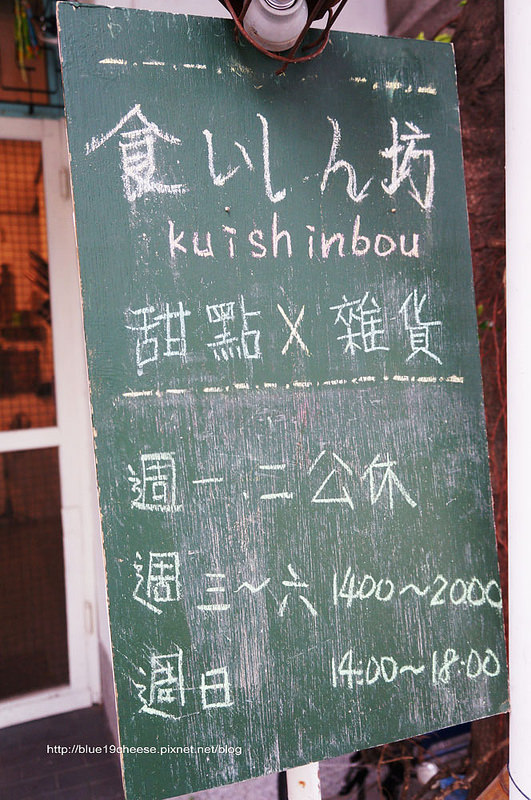 食いしん坊
kuishinbou
甜點X雜貨
週一.二公休
週三~六 1400~2000
週日 14:00~18:00
http://blue19cheese.pixnet.net/blog